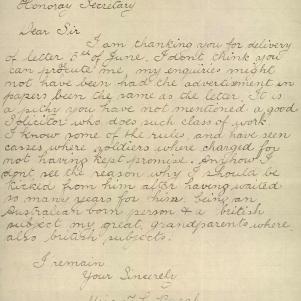 Honoray Secretary
Dear Sir
I am thanking you for delivery
of letter 5th of June. I don't think you
can procute me, my enquiries might
not have been had the advertisment in
papers been the same as the letter. It is
a pithy you have not mentioned a good
Solicitor who does such class of work.
I know some of the rules, and have seen
casses where soldiers where charged for
not having kept promise. Anyhow I
dont see the reason why I should be
kickid from him after having waited
so many years for him. being an
Australian born person & a british
subject my great, grandparents where
also british subjects.
I remain
Your Sincerely
Miss